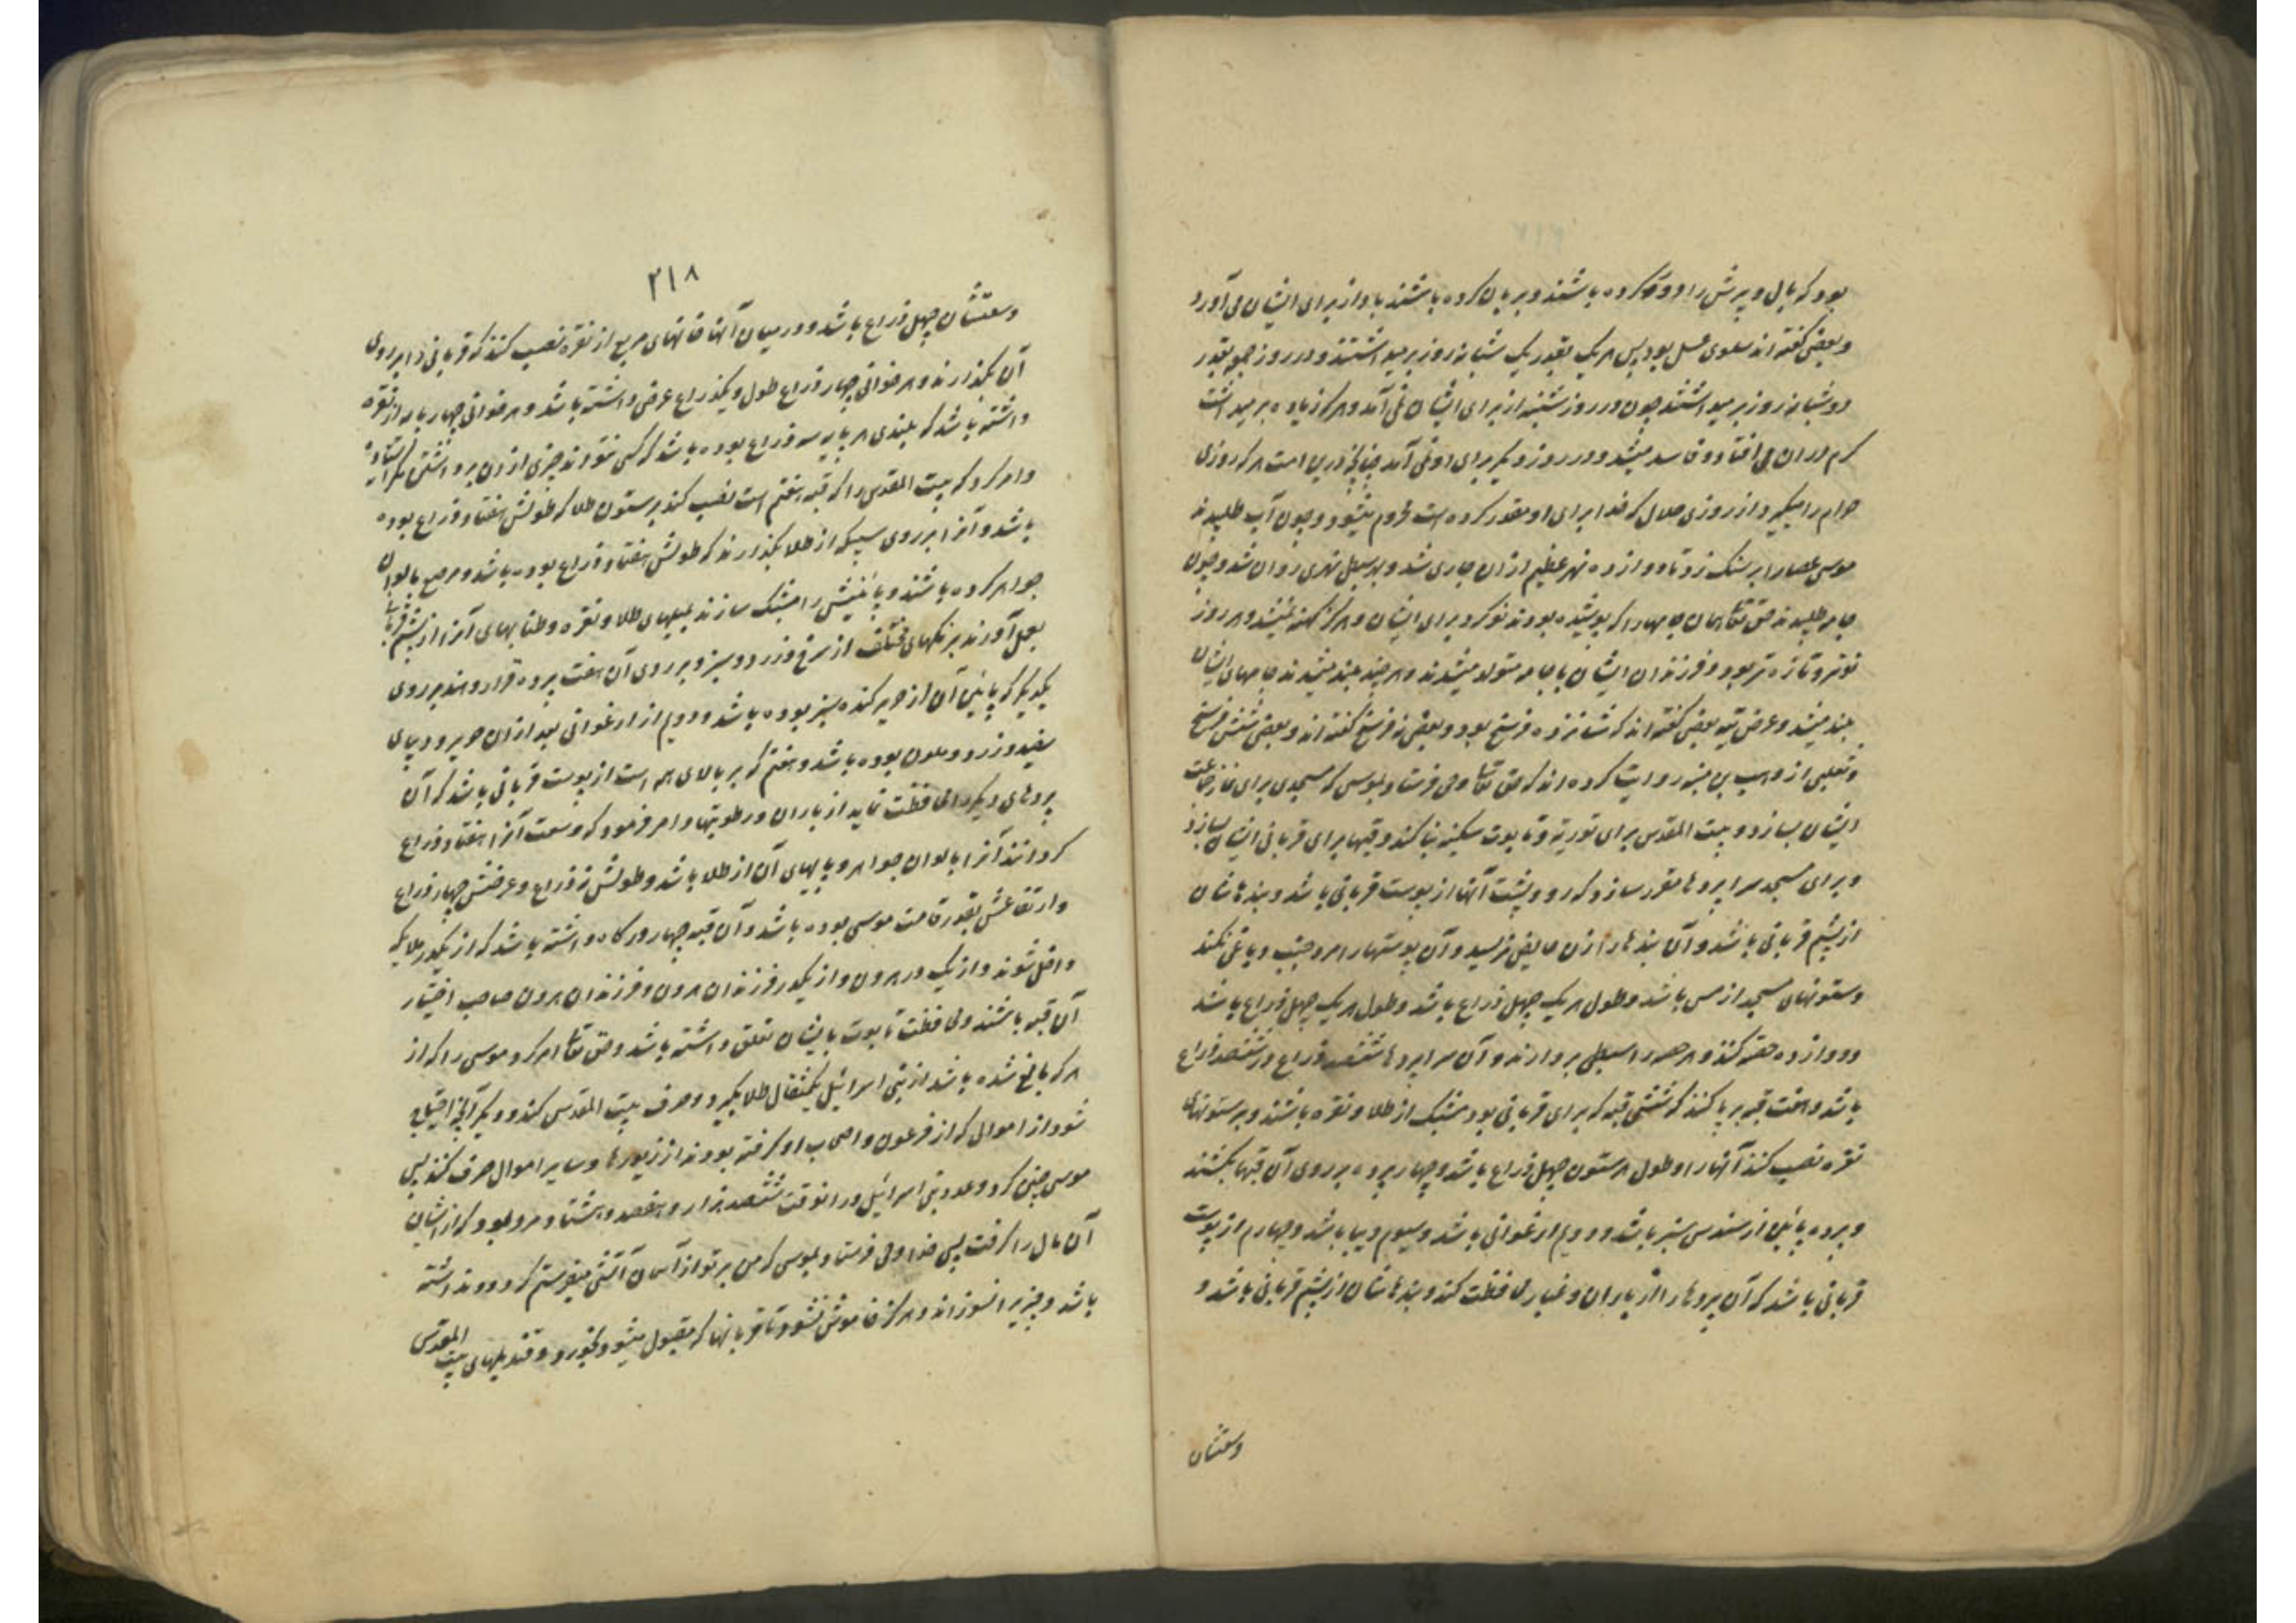 بود که بال و پرش را دور کرده باشند و بریان کرده باشند باد از برای ایشان می آورد
و بعضی گفته اند سلوی عسل بود پس هر یک بقدر یک شبانه روز برمیداشتند و در روز جمعه بقدر
دو شبانه روز برمیداشتند چون در روز شنبه از برای ایشان نمی آمد و هر که زیاده برمیداشت
کرم در ان می افتاد و فاسد میشد و در روز دیگر برای او نمی آمد چنانچه درین امت هر که روزی
حرام را میگیرد از روزی حلال که خدا برای او مقدر کرده است محروم میشود و چون آب طلبیدند
موسی عصا را بر سنگ زد تا دوازده نهر عظیم ازان جاری شد و بهر سبطی نهری روان شد و چون
جامه طلبیدند حق تعالی همان جامها را که پوشیده بودند نو کرد برای ایشان و هرگز کهنه نمیشد و هر روز
نوتر و تازه تر بود و فرزندان ایشان با جامه متولد میشدند و هر چند بلند میشدند جامهای ایشان
بلند میشد و عرض تیه بعضی گفته اند که شانزده فرسخ بود و بعضی نه فرسخ گفته اند و بعضی شش فرسخ
و ثعلبی از وهب بن منبه روایت کرده اند که حق تعالی وحی فرستاد بموسی که مسجدی برای نماز جماعت
ایشان بسازد و بیت المقدس برای توریة و تابوت سکینه بنا کند و قبها برای قربانی ایشان بسازد
و برای مسجد سراپردها مقرر سازد که رو و پشت آنها از پوست قربانی باشد و بندهاشان
از پشم قربانی باشد و آن بندها را زن حایض نریسد و آن پوستها را مرد جنب دباغی نکند
و ستونهای مسجد از مس باشد و طول هر یک چهل ذراع باشد و طول هر یک چهل ذراع باشد
و دوازده حصه کنند و هر حصه را سبطی بردارند و آن سراپردها ششصد ذراع در ششصد ذراع
باشد و هفت قبه بر پا کنند که شش قبه که برای قربانی بود مشبک از طلا و نقره باشند و بر ستونهای
نقره نصب کنند آنها را و طول هر ستون چهل ذراع باشد و چهار پرده بر روی آن قبها بکشند
و پرده پائین از سندس سبز باشد و دویم ارغوانی باشد و سیوم دیبا باشد و چهارم از پوست
قربانی باشد که آن پردها را از باران و غبار محافظت کند و بندهاشان از پشم قربانی باشد و
وسعتشان
۲۱۸
وسعتشان چهل ذراع باشد و در میان آنها خوانهای مربع از نقره نصب کنند که قربانی را بر روی
آن بگذارند و هر خوانی چهار ذراع طول و یکذراع عرض داشته باشد و هر خوانی چهار پایه از نقره
داشته باشد که بلندی هر پایه سه ذراع بوده باشد که کسی نتواند چیزی از ان برداشتن مگر ایستاده
و امر کرد که بیت المقدس را که قبه هفتم است نصب کند بر ستون طلا که طولش هفتاد ذراع بوده
باشد و آنرا بر روی سبیکه از طلا بگذارند که طولش هفتاد ذراع بوده باشد و مرصع بالوان
جواهر کرده باشند و پائینش را مشبک سازند بمیلهای طلا و نقره و طنابهای آنرا از پشم قربانی
بعمل آورند برنگهای مختلف از سرخ و زرد و سبز و بر روی آن هفت پرده قرار دهند بر روی
یکدیگر که پائین آن از حریر کنده سبز بوده باشد و دویم از ارغوانی بعد ازان حریر و دیبای
سفید و زرد و ملون بوده باشد و هفتم که بر بالای همه است از پوست قربانی باشد که آن
پردهای دیگر را محافظت نماید از باران و رطوبتها و امر فرمود که وسعت آنرا هفتاد ذراع
گردانند آنرا بالوان جواهر و پایهای آن از طلا باشد و طولش نه ذراع و عرضش چهار ذراع
و ارتفاعش بقدر قامت موسی بوده باشد و آن قبه چهار درگاه داشته باشد که از یکدر ملایکه
داخل شوند و از یک در هرون و از یکدر فرزندان هرون و فرزندان هرون صاحب اختیار
آن قبه باشند و محافظت تابوت بایشان تعلق داشته باشد و حق تعالی امر کرد موسی را که از
هر که بالغ شده باشد از بنی اسرائیل یکمثقال طلا بگیرد و صرف بیت المقدس کند و دیگر آنچه احتیاج
شود از اموالی که از فرعون و اصحاب او گرفته بودند از زیورها و سایر اموال صرف کنند پس
موسی چنین کرد و عدد بنی اسرائیل در انوقت ششصد هزار و هفصد و هشتاد مرد بود که از ایشان
آن مال را گرفت پس خدا وحی فرستاد بموسی که من بر تو از آسمان آتشی میفرستم که دود نداشته
باشد و چیزیرا نسوزاند و هرگز خاموش نشود تا قربانیها که مقبول میشود بخورد و قندیلهای بیت المقدس